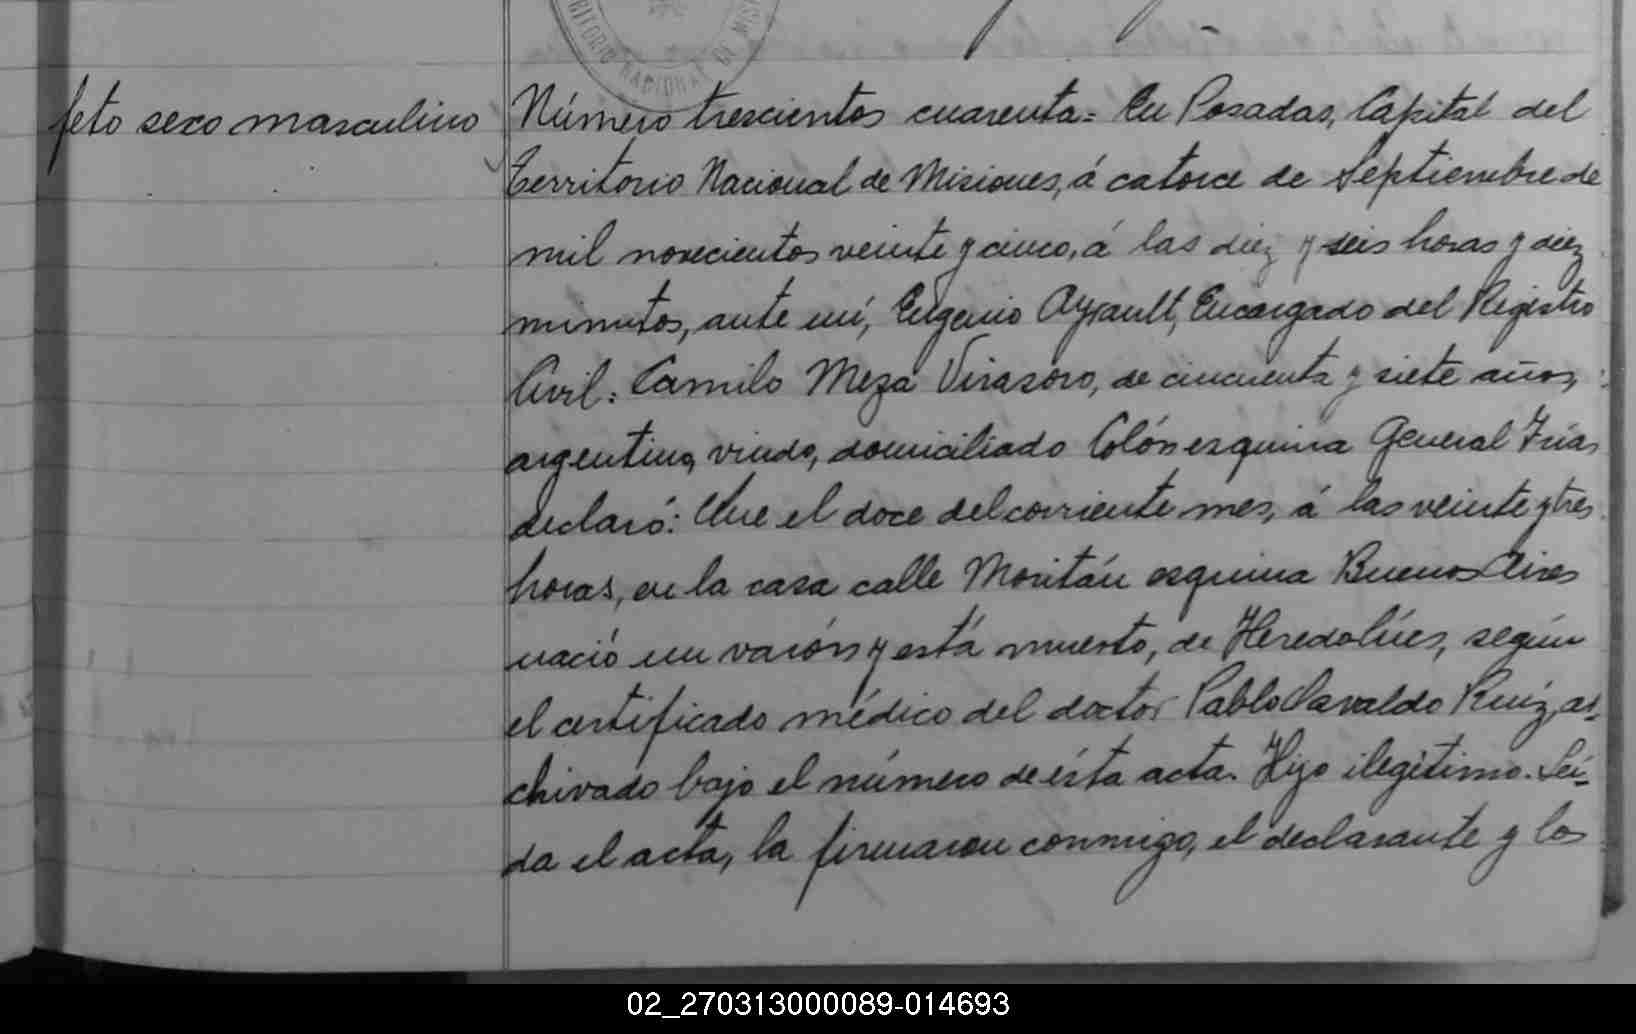 TERRITORIO NACIONAL DE MISI
feto seco masculino
Número trescientos cuarenta= En Posadas, Capital del
Territorio Nacional de Misiones, á catorce de Septiembre de
mil novecientos veinte y cinco, á las diez y seis horas y diez
minutos, ante mí, Eugenio Ayrault, Encargado del Registro
Civil: Camilo Meza Virasoro, de cincuenta y siete años,
argentino, viudo, domiciliado Colón esquina General Frias
declaró: Que el doce del corriente mes, á las veinte y tres
horas, en la casa calle Moritán esquina Buenos Aires
nació un varón y está muerto, de según
el certificado médico del doctor Pablo Ruiz, ar-
chivado bajo el número de ésta acta. Hijo ilegítimo. Leí-
da el acta, la firmaron conmigo, el declarante y los
02_270313000089-014693